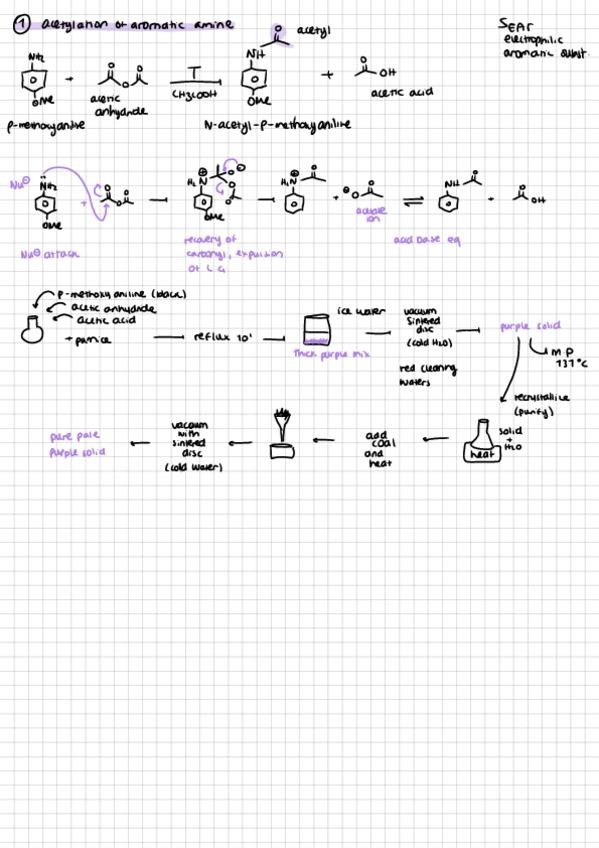 ① acetylation of aromatic amine
SEAr
electrophilic
aromatic subst.
acetyl
NH₂
OMe
+
O O
O
T
CH3COOH
NH
O
OMe
+
O
OH
acetic
anhydride
acetic acid
p-methoxyaniline
N-acetyl-p-methoxyaniline
Nu⊖
NH₂
OMe
+
H₂N
OMe
H₂N
+
acetate
ion
NH
+
OH
Nu⊖ attack
recovery of
carbonyl, expulsion
of LG
acid base eq
p-methoxyaniline (black)
acetic anhydride
acetic acid
+ pumice
reflux 10'
ice water
thick purple mix
vacuum
sintered
disc
(cold H₂O)
red cleaning
waters
purple solid
MP
137°C
recrystallise
(purify)
solid
+
H₂O
heat
add
coal
and
heat
vacuum
with
sintered
disc
(cold water)
pure pale
purple solid